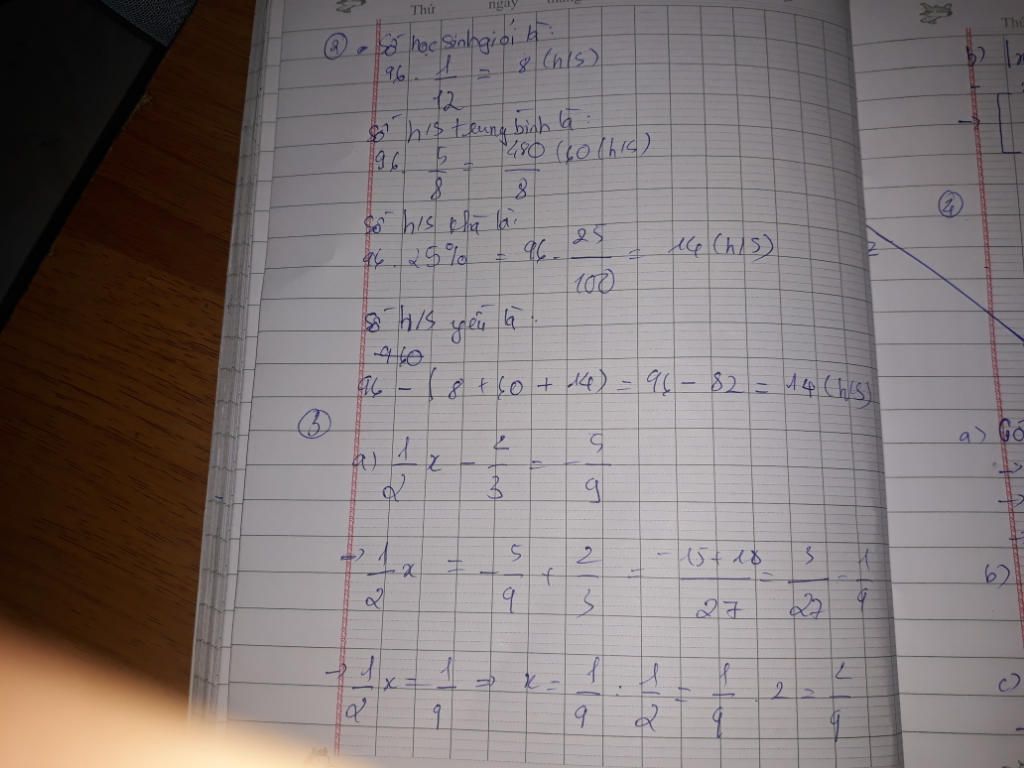 Thứ ngày tháng
② Số học sinh giỏi là:
96 . 1/12 = 8 (h/S)
Số h/s trung bình là:
96 . 5/8 = 480/8 = 60 (h/S)
Số h/s khá là:
96 . 25% = 96 . 25/100 = 14 (h/S)
Số h/s yếu là:
96 - (8 + 60 + 14) = 96 - 82 = 14 (h/S)
③
a) 1/2 x - 2/3 = - 5/9
→ 1/2 x = - 5/9 + 2/3 = (-15 + 18)/27 = 3/27 = 1/9
→ 1/2 x = 1/9 ⇒ x = 1/9 : 1/2 = 1/9 . 2 = 2/9
b)
④
a)
b)
c)